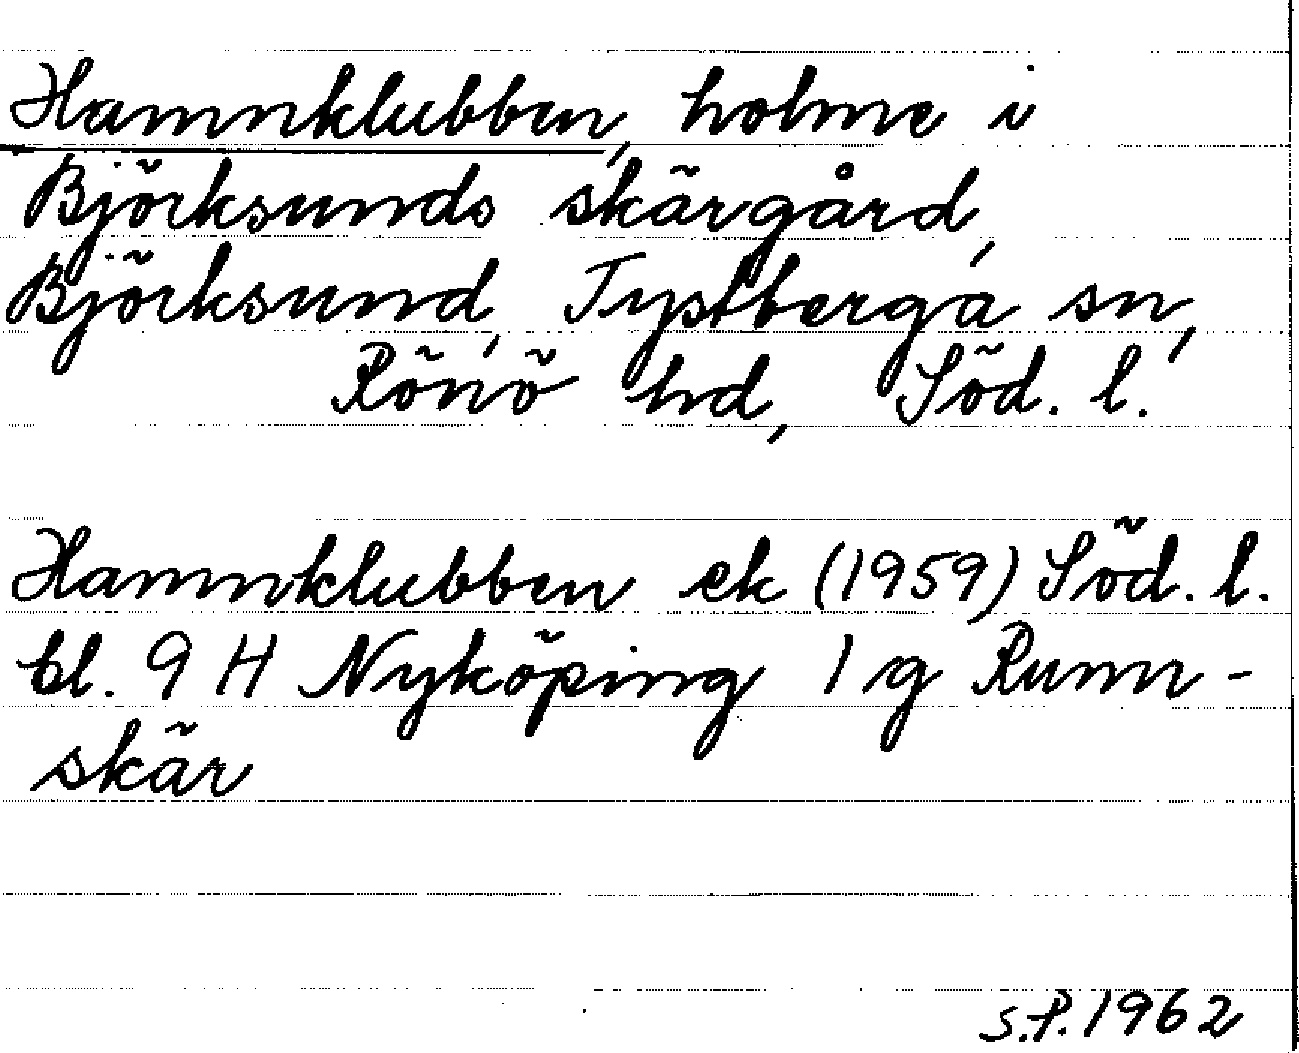 Hamnklubben, holme i
Björksunds skärgård,
Björksund, Tystberga sn,
Rönö hd, Söd. l.
Hamnklubben ek (1959) Söd. l.
bl. 9 H Nyköping 1 g Runn-
skär
S.P. 1962